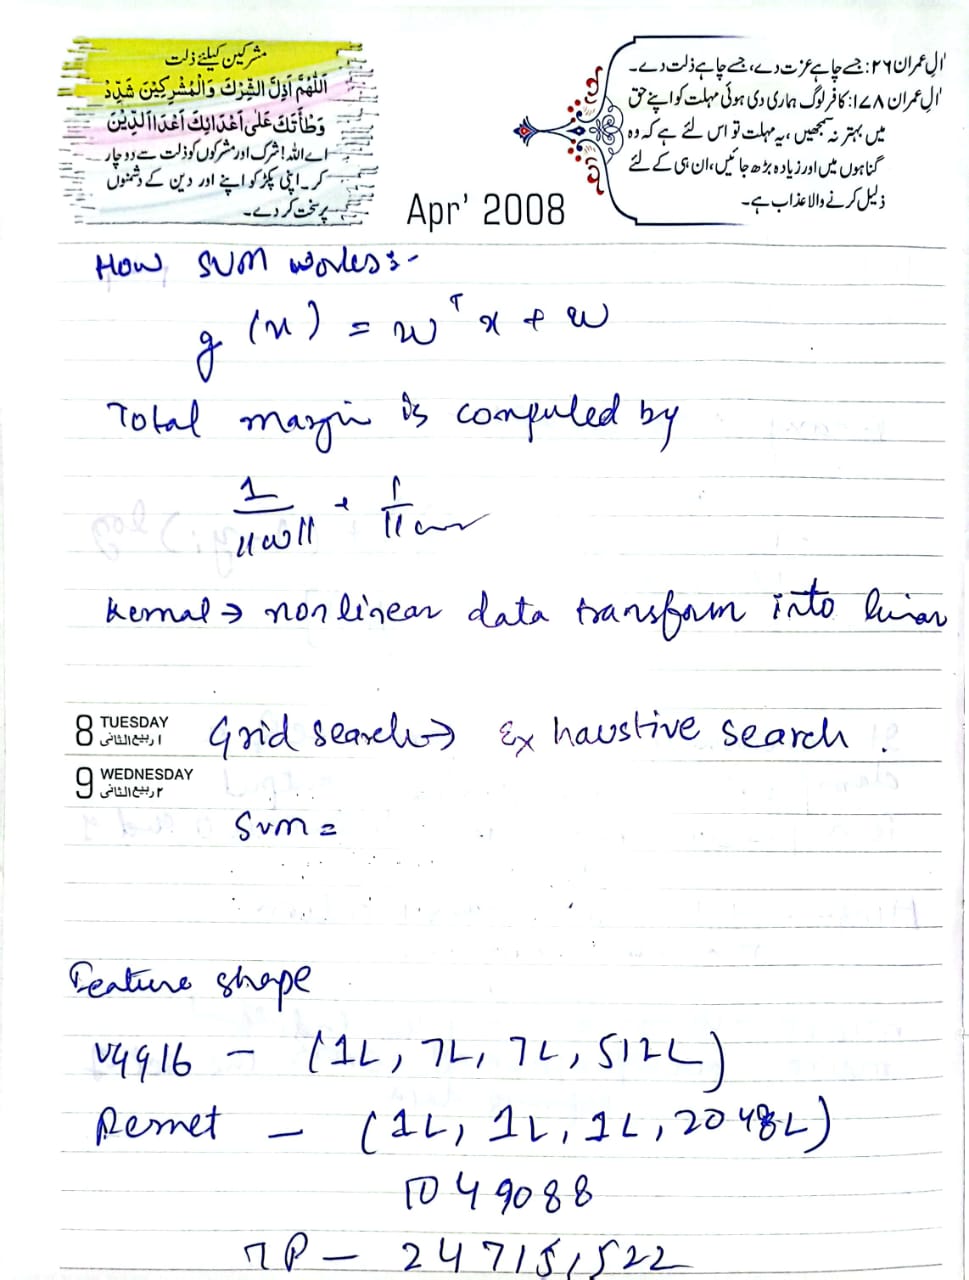 مشرکین کیلئے ذلت
اَللّٰهُمَّ اَذِلَّ الشِّرْكَ وَالْمُشْرِكِيْنَ شَدِّدْ
وَطْأَتَكَ عَلٰى اَعْدَائِكَ اَعْدَاالدِّيْنَ
اے اللہ! شرک اور مشرکوں کو ذلت سے دوچار
کر۔ اپنی پکڑ کو اپنے اور دین کے دشمنوں
پر سخت کر دے۔
اٰل عمران ۲۶: جسے چاہے عزت دے، جسے چاہے ذلت دے۔
اٰل عمران ۱۷۸: کافر لوگ ہماری دی ہوئی مہلت کو اپنے حق
میں بہتر نہ سمجھیں، یہ مہلت تو اس لئے ہے کہ وہ
گناہوں میں اور زیادہ بڑھ جائیں، ان ہی کے لئے
ذلیل کرنے والا عذاب ہے۔
Apr' 2008
How SVM works:-
g(x) = w^T x + w
Total margin is computed by
1/||w|| + 1/||
Kernal → non linear data transform into
8 TUESDAY ۱ ربیع الثانی
Grid search → Exhaustive search.
9 WEDNESDAY ۲ ربیع الثانی
SVM =
Feature shape
VGG16 – (1L, 7L, 7L, 512L)
Resnet – (1L, 1L, 1L, 2048L)
49088
P – 247151522